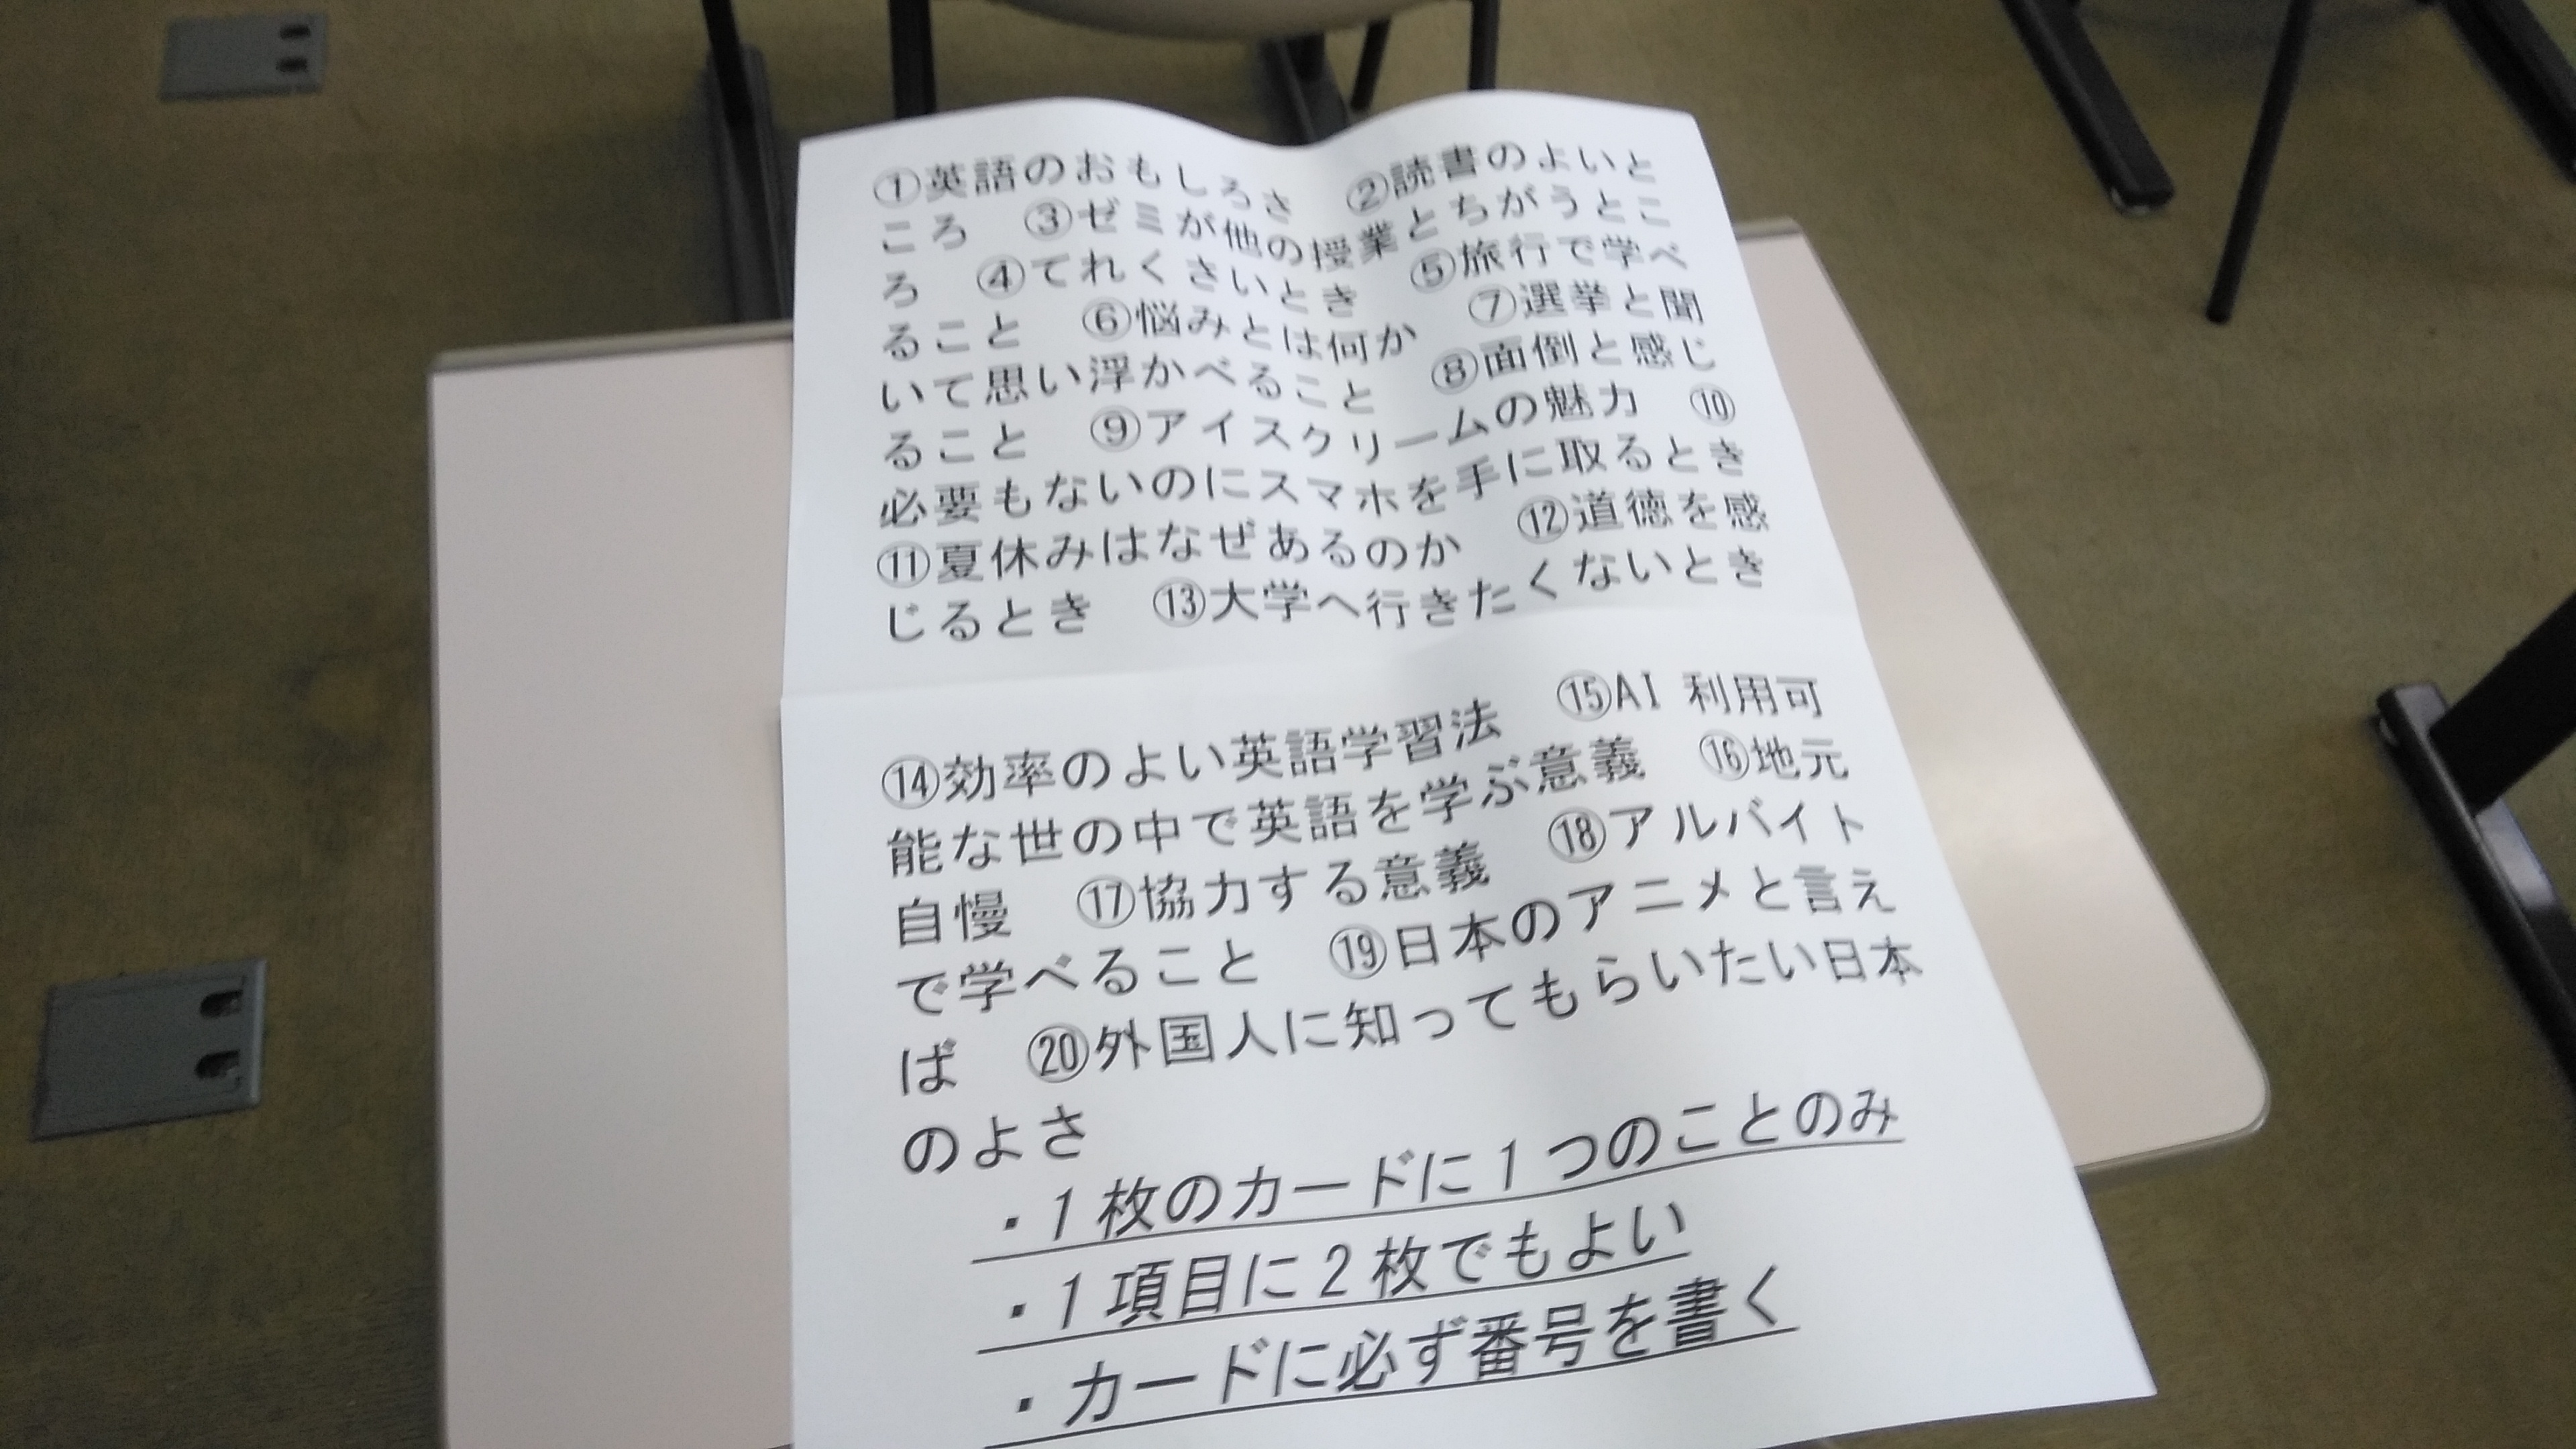 ①英語のおもしろさ　②読書のよいと
ころ　③ゼミが他の授業とちがうとこ
ろ　④てれくさいとき　⑤旅行で学べ
ること　⑥悩みとは何か　⑦選挙と聞
いて思い浮かべること　⑧面倒と感じ
ること　⑨アイスクリームの魅力　⑩
必要もないのにスマホを手に取るとき
⑪夏休みはなぜあるのか　⑫道徳を感
じるとき　⑬大学へ行きたくないとき
⑭効率のよい英語学習法　⑮AI 利用可
能な世の中で英語を学ぶ意義　⑯地元
自慢　⑰協力する意義　⑱アルバイト
で学べること　⑲日本のアニメと言え
ば　⑳外国人に知ってもらいたい日本
のよさ
・1枚のカードに1つのことのみ
・1項目に2枚でもよい
・カードに必ず番号を書く